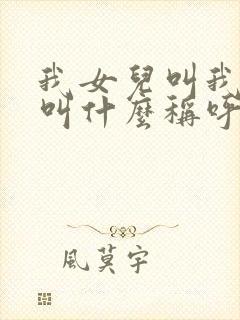 我女兒叫我
叫什麼稱呼
風莫宇